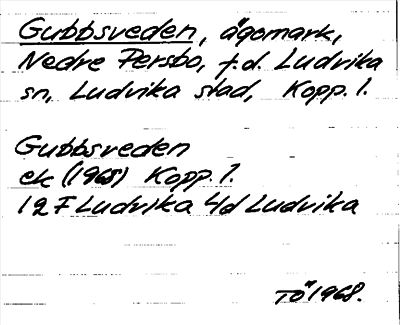 Gubbsveden, ägomark,
Nedre Persbo, f.d. Ludvika
sn, Ludvika stad, Kopp. l.
Gubbsveden
ek (1968) Kopp. l.
12F Ludvika 4d Ludvika
TÖ 1968.